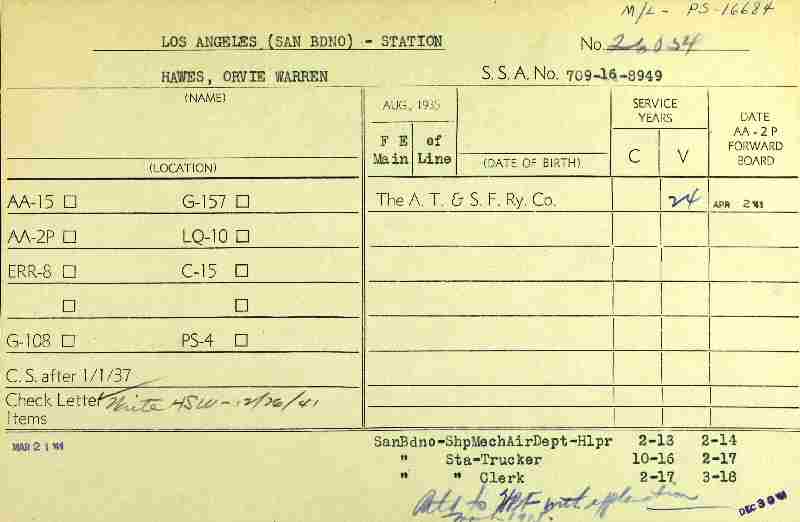 M/L - PS-16684
LOS ANGELES (SAN BDNO) - STATION
No. 26034
HAWES, ORVIE WARREN
S. S. A. No. 709-16-8949
(NAME)
AUG, 1935
SERVICE YEARS
DATE AA-2P FORWARD BOARD
F E of
Main Line
(LOCATION)
(DATE OF BIRTH)
C V
AA-15 G-157
The A. T. & S. F. Ry. Co. 24 APR 2 '41
AA-2P LQ-10
ERR-8 C-15
G-108 PS-4
C. S. after 1/1/37
Check Letter Write HSW - 12/26/41
Items
MAR 21 '41
SanBdno-ShpMechAirDept-Hlpr 2-13 2-14
" Sta-Trucker 10-16 2-17
" " Clerk 2-17 3-18
to with explanation
DEC 30 '41